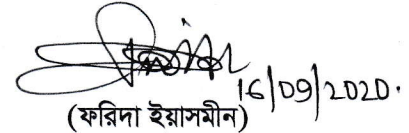 16/09/2020.
(ফরিদা ইয়াসমীন)